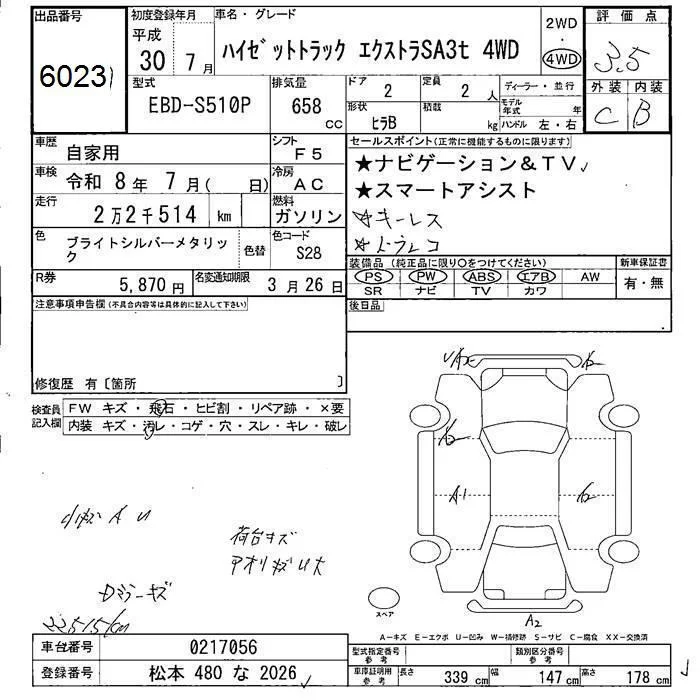 出品番号
60231
初度登録年月
平成
30 7月
車名・グレード
ハイゼットトラック エクストラSA3t 4WD
2WD
・
4WD
評価点
3.5
外装 内装
C B
型式
EBD-S510P
排気量
658
CC
ドア
2
定員
2 人
形状
ヒラB
積載
kg
ディーラー・並行
モデル年式 年
ハンドル 左・右
車歴
自家用
シフト
F5
車検
令和 8年 7月( 日)
冷房
AC
走行
2万2千514 km
燃料
ガソリン
色
ブライトシルバーメタリック
色替
色コード
S28
R券
5,870円
名変通知期限
3月26日
セールスポイント(正常に機能するものに限ります)
★ナビゲーション&TV
★スマートアシスト
★キーレス
★ドラレコ
装備品(純正品に限り○をつけてください)
PS PW ABS エアB AW
SR ナビ TV カワ
新車保証書
有・無
後日品
注意事項申告欄(不具合内容等は具体的に記入して下さい)
修復歴 有〔箇所 〕
検査員記入欄
FW キズ・飛石・ヒビ割・リペア跡・×要
内装 キズ・汚レ・コゲ・穴・スレ・キレ・破レ
小キズ A U
荷台キズ
アオリキズU大
Dミラーキズ
A1
A2
スペア
A-キズ E-エクボ U-凹み W-補修跡 S-サビ C-腐食 XX-交換済
車台番号
0217056
登録番号
松本 480 な 2026
型式指定番号
参考
類別区分番号
参考
車庫証明用
参考
長さ
339 cm
幅
147 cm
高さ
178 cm